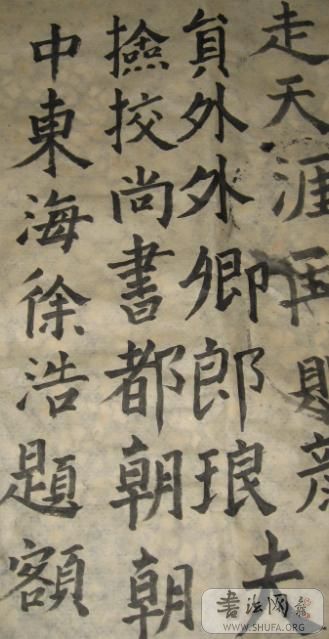 走天涯
貟外外卿郎琅
撿挍尚書都朝朝
中東海徐浩題額
書法网
WWW.SHUFA.ORG